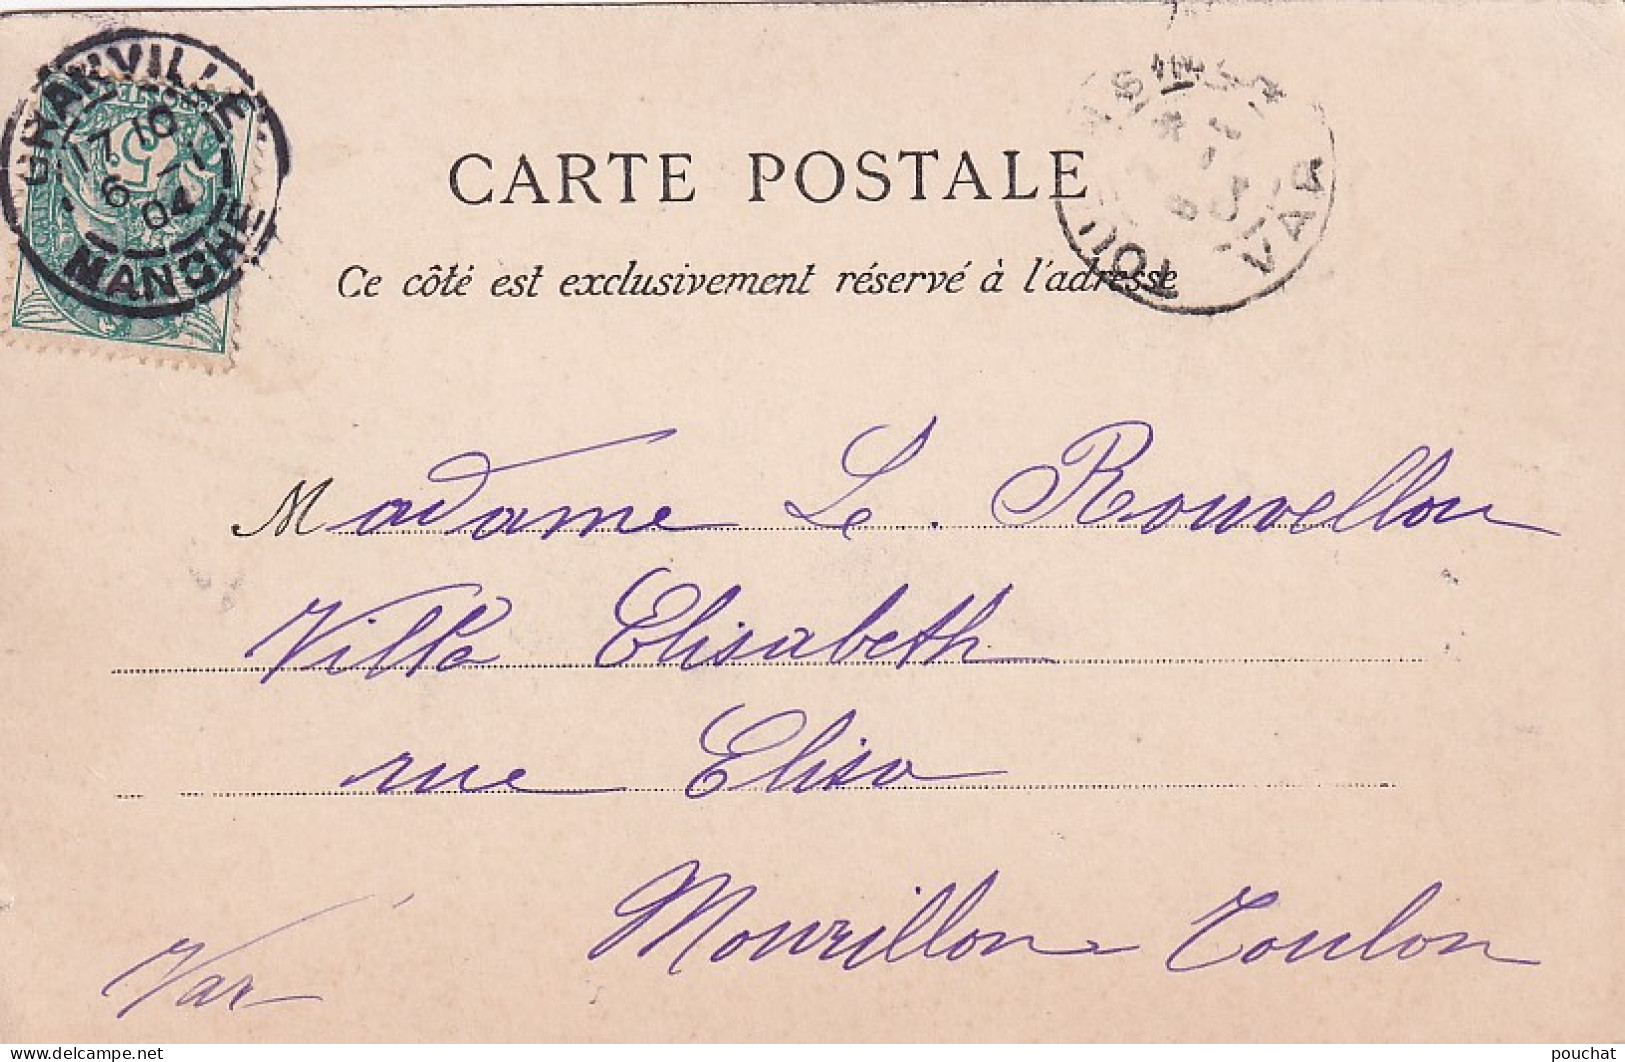 GRANVILLE
17 10
6 -1
04
MANCHE
VAR
CARTE POSTALE
Ce côté est exclusivement réservé à l'adresse
Madame Le Rouvellou
Villa Elisabeth
rue Elisa
Mourillon Toulon
Var
delcampe.net
pouchat